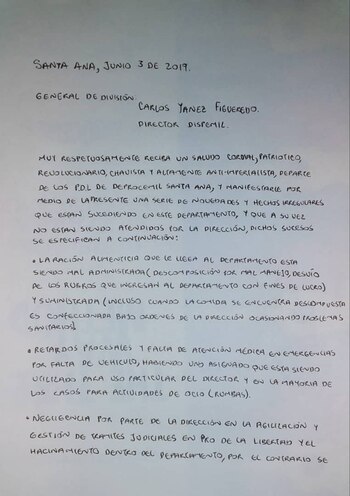 SANTA ANA, JUNIO 3 DE 2019.
GENERAL DE DIVISIÓN
CARLOS YANEZ FIGUEREDO.
DIRECTOR DISPEMIL.
MUY RESPETUOSAMENTE RECIBA UN SALUDO CORDIAL, PATRIOTICO,
REVOLUCIONARIO, CHAVISTA Y ALTAMENTE ANTI-IMPERIALISTA, DE PARTE
DE LOS P.D.L DE DEPROCEMIL SANTA ANA, Y MANIFESTARLE POR
MEDIO DE LA PRESENTE UNA SERIE DE NOVEDADES Y HECHOS IRREGULARES
QUE ESTAN SUCEDIENDO EN ESTE DEPARTAMENTO, Y QUE A SU VEZ
NO ESTAN SIENDO ATENDIDOS POR LA DIRECCIÓN, DICHOS SUCESOS
SE ESPECIFICAN A CONTINUACIÓN:
• LA RACIÓN ALIMENTICIA QUE LE LLEGA AL DEPARTAMENTO ESTA
SIENDO MAL ADMINISTRADA (DESCOMPOSICIÓN POR MAL MANEJO, DESVIO
DE LOS RUBROS QUE INGRESAN AL DEPARTAMENTO CON FINES DE LUCRO)
Y SUMINISTRADA (INCLUSO CUANDO LA COMIDA SE ENCUENTRA DESCOMPUESTA
ES CONFECCIONADA BAJO ORDENES DE LA DIRECCIÓN OCASIONANDO PROBLEMAS
SANITARIOS).
• RETARDOS PROCESALES Y FALTA DE ATENCIÓN MÉDICA EN EMERGENCIAS
POR FALTA DE VEHICULO, HABIENDO UNO ASIGNADO QUE ESTA SIENDO
UTILIZADO PARA USO PARTICULAR DEL DIRECTOR Y EN LA MAYORIA DE
LOS CASOS PARA ACTIVIDADES DE OCIO (RUMBAS).
• NEGLIGENCIA POR PARTE DE LA DIRECCIÓN EN LA AGILIZACIÓN Y
GESTIÓN DE TRAMITES JUDICIALES EN PRO DE LA LIBERTAD Y EL
HACINAMIENTO DENTRO DEL DEPARTAMENTO, POR EL CONTRARIO SE